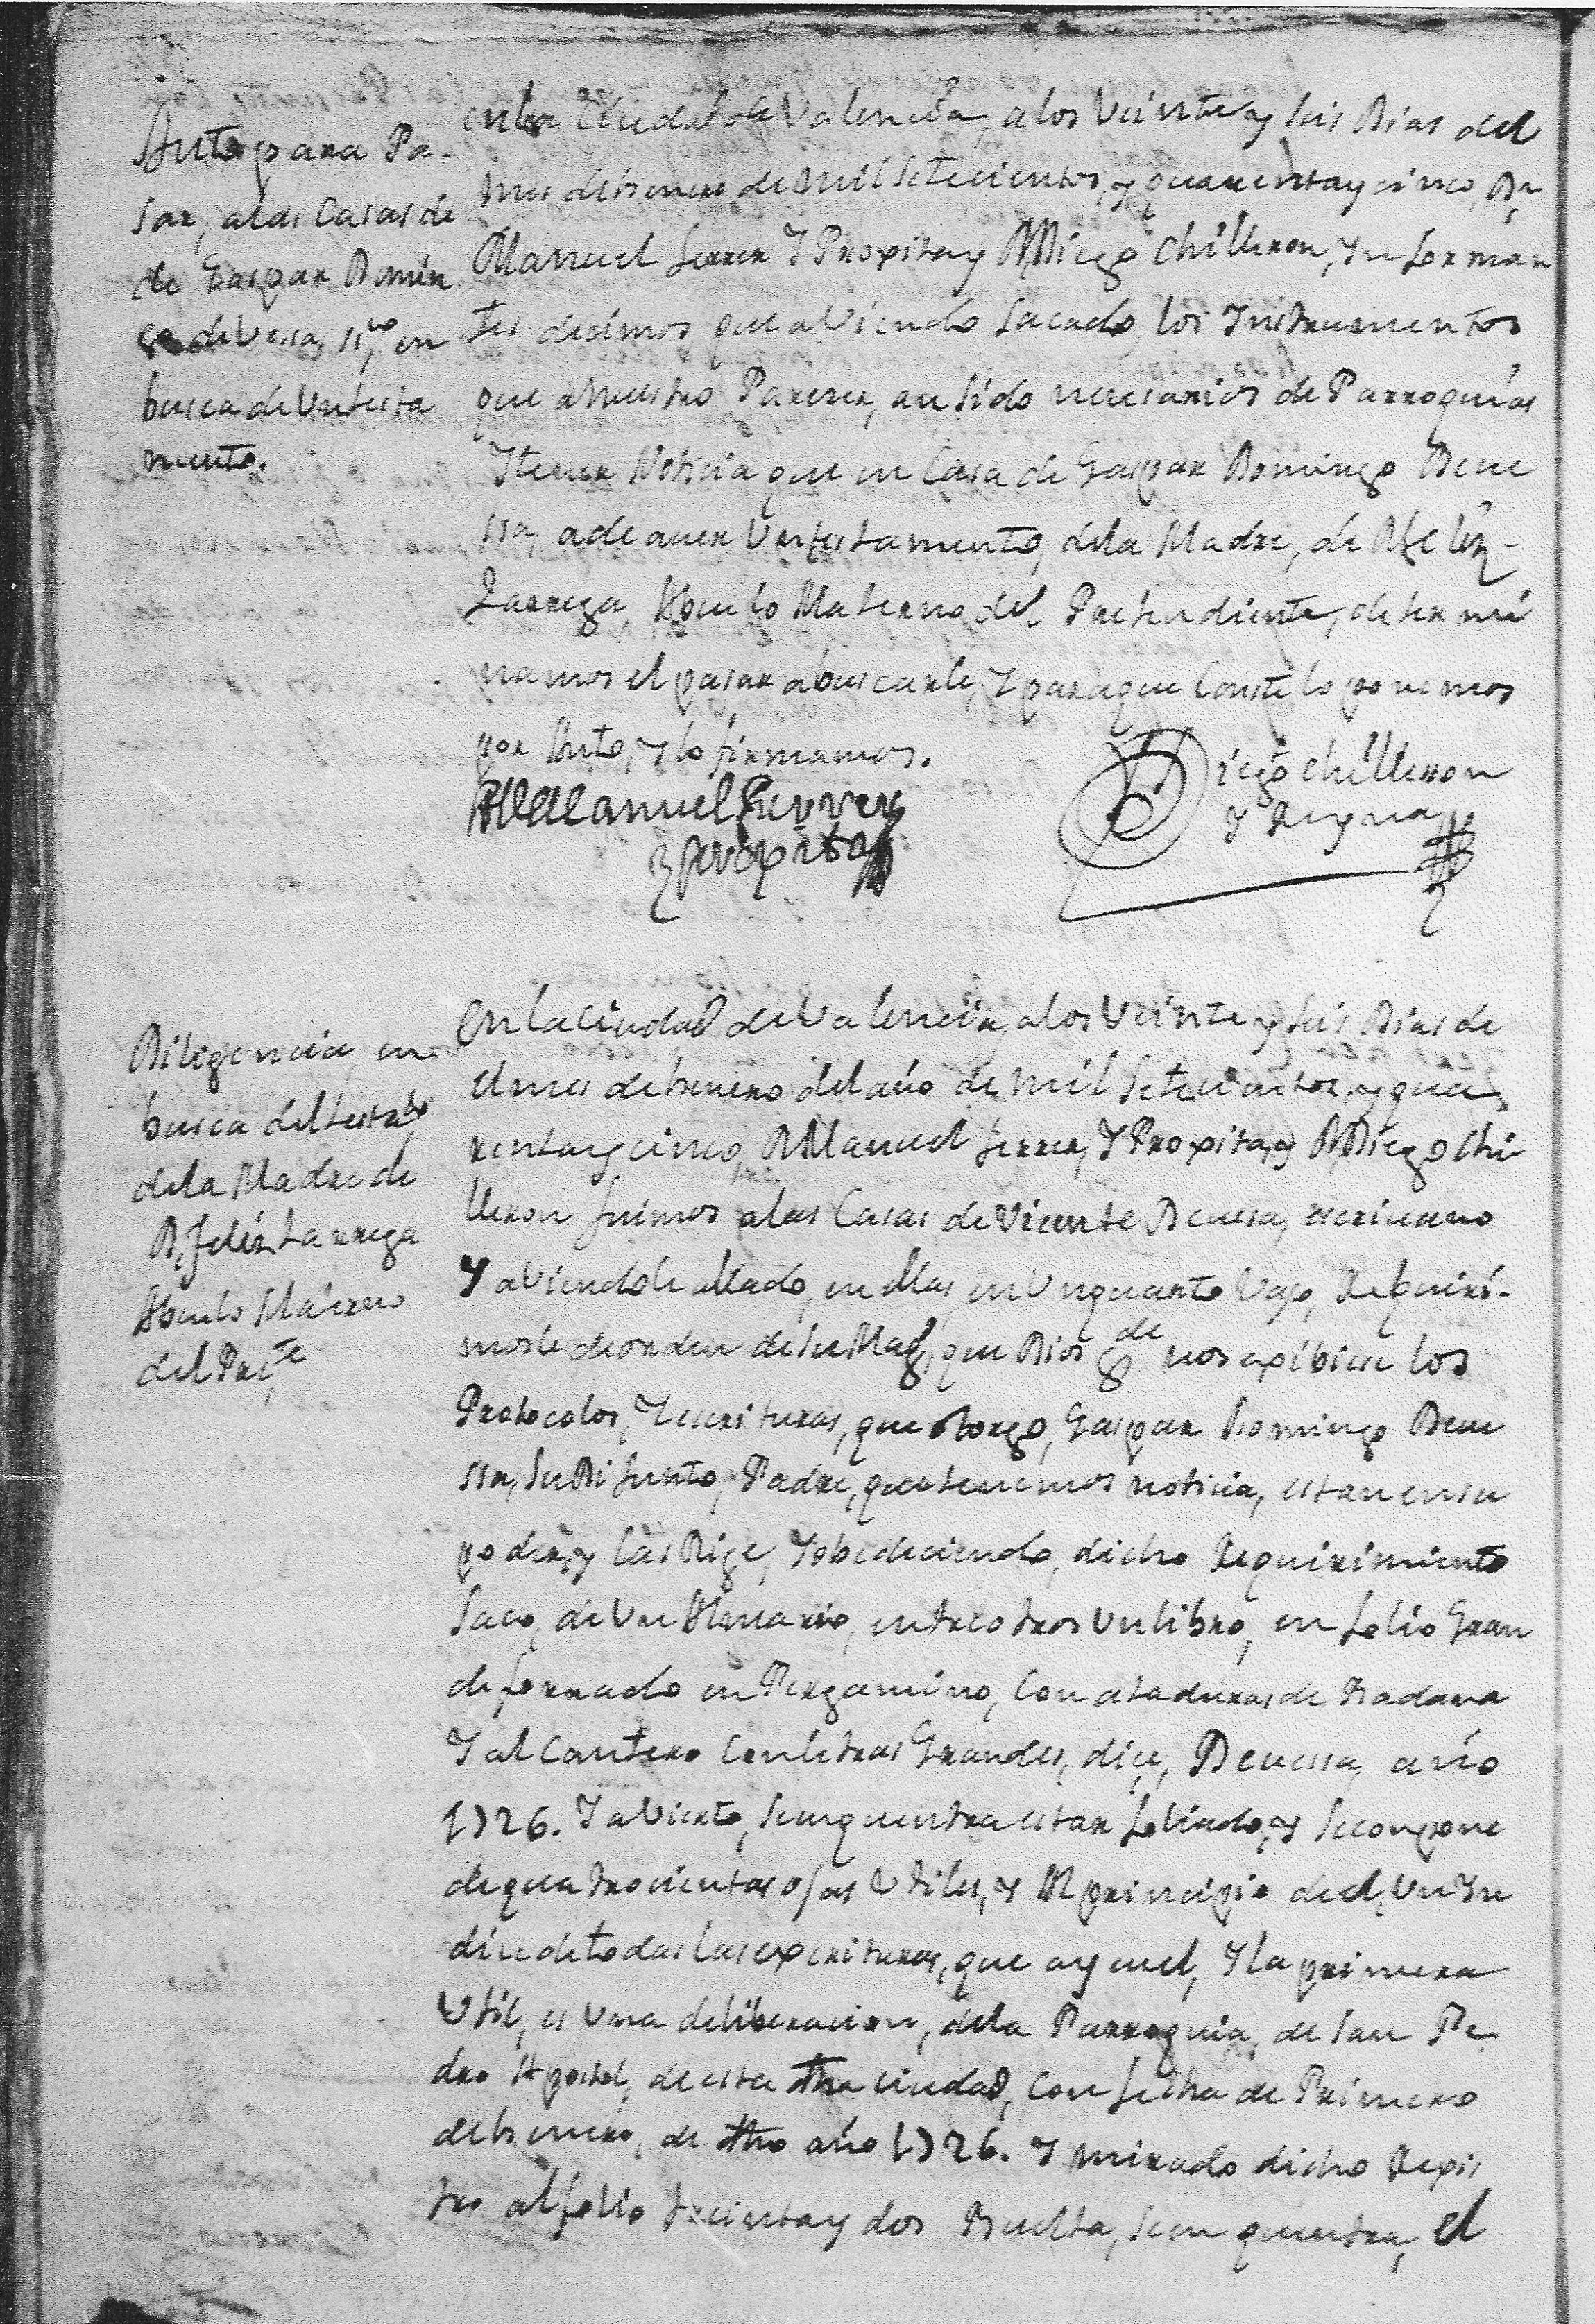 Auto para Pa-
sar, a las Casas de
de Gaspar Domin
go de Vessa, ssno, en
busca de Untesta
mento.
en la Ciudad de Valencia, a los Veinte y seis Dias del
mes de henero de mil setecientos, y quarenta y cinco, Dn
Manuel Ferrer Y Proxita y D Diego Chilleron, Informan
tes decimos que aViendo sacado, los Instrumentos
que a Nuestro Parecer, an sido necesarios de Parroquias
Y tener Noticia que en Casa de Gaspar Domingo Deue
ssa, a de auer Untestamento, dela Madre, de D Felix
Tarrega, Abuelo Materno, del Pretendiente, determi
namos el pasar abuscarle, Y para que Conste lo ponemos
por Auto, y lo firmamos.
D Manuel Ferrer
y Proxita
Diego Chilleron
Y Reyna
Diligencia, en
busca del testato
dela Madre de
D, Felix, tarrega
Abuelo Materno
del Prete
En la Ciudad de Valencia, a los Veinte y seis Dias de
el mes de henero del año de mil setecientos, y qua
renta y cinco, D Manuel Ferrer, Y Proxita, y D Diego Chi
lleron fuimos a las Casas de Vicente Deuesa, escriuano
Y aViendole allado, en ellas, en Un quarto Vaxo, Requiri-
mosle de orden de su Magd, que Dios gde nos exibiese los
Protocolos, Y escrituras, que otorgo, Gaspar Domingo Deue
ssa, su Difunto, Padre, que tenemos noticia, estan en su
poder, y las Rige, Y obedeciendo, dicho Requirimiento
Saco, de Un Almario, entre otros Un libro, en folio Gran
de forrado en Pergamino, Con ataduras de Badana
Y al Cantero Con letras Grandes, dice, Deuessa, año
1726. Y aVierto, se enquentra estar foliado, y se compone
de quatrocientas ojas Utiles, y Al principio del, Un In
dice de todas las expcrituras, que ay en el, Y la primera
Util, es Una deliberacion, dela Parroquia, de San Pe
dro Apostol, de esta dha ciudad, Con fecha de Primero
de henero, de dho año 1726. Y mirado dicho Regis
tro al folio treinta y dos Buelta, se en quentra, el